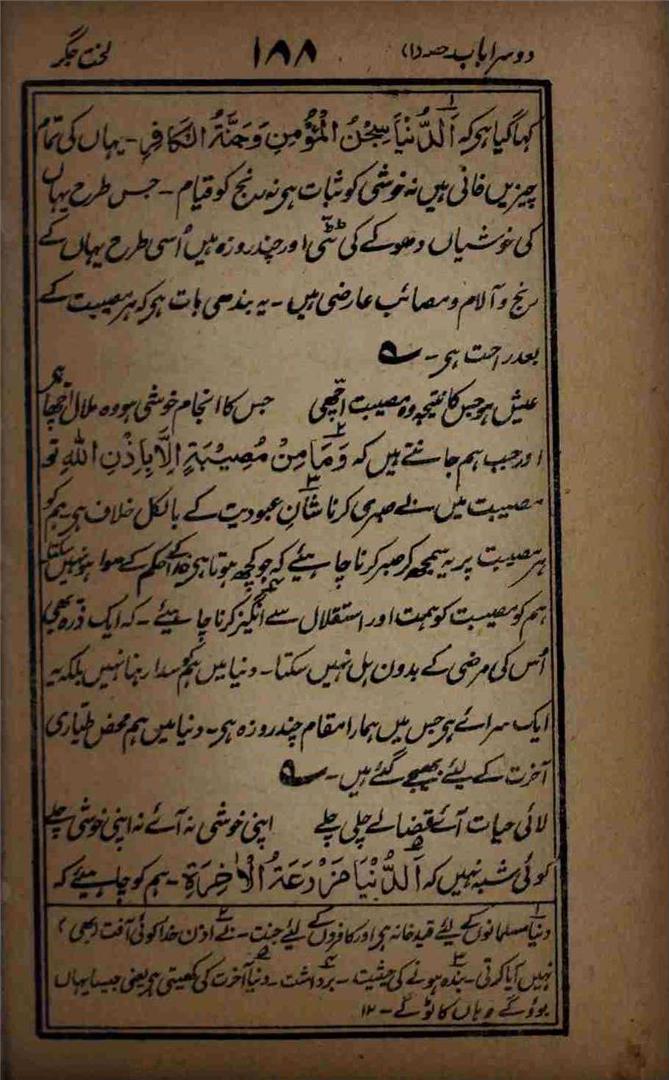 دوسرا باب حصہ (۱) ۱۸۸ لخت جگر
کہا گیا ہی کہ اَلدُّنْیَا سِجْنُ الْمُؤْمِنِ وَجَنَّةُ الْکَافِرِ - یہاں کی تمام
چیزیں فانی ہیں نہ خوشی کو ثبات ہی نہ رنج کو قیام - جس طرح یہاں
کی خوشیاں دھوکے کی ٹٹّی اور چند روزہ ہیں اُسی طرح یہاں کے
رنج و آلام و مصائب عارضی ہیں - یہ بندھی بات ہی کہ ہر مصیبت کے
بعد راحت ہی - ؎
عیش ہو جس کا نتیجہ وہ مصیبت اچھی جس کا انجام خوشی ہو وہ ملال اچھا ہی
اور جب ہم جانتے ہیں کہ وَمَا مِنْ مُصِیْبَةٍ اِلَّا بِاِذْنِ اللہِ تو
مصیبت میں بے صبری کرنا شانِ عبودیت کے بالکل خلاف ہی ہم کو
ہر مصیبت پر یہ سمجھ کر صبر کرنا چاہیئے کہ جو کچھ ہوتا ہی خدا کے حکم کے سوا ہو نہیں سکتا
ہم کو مصیبت کو ہمت اور استقلال سے انگیز کرنا چاہیئے - کہ ایک ذرّہ بھی
اُس کی مرضی کے بدون ہل نہیں سکتا - دنیا میں ہم کو سدا رہنا نہیں بلکہ یہ
ایک سرائے ہی جس میں ہمارا مقام چند روزہ ہی - دنیا میں ہم محض طیّاری
آخرت کے لیئے بھیجے گئے ہیں - ؎
لائی حیات آئے قضا لے چلی چلے اپنی خوشی نہ آئے نہ اپنی خوشی چلے
کوئی شبہ نہیں کہ اَلدُّنْیَا مَزْرَعَةُ الْاٰخِرَةِ - ہم کو چاہیئے کہ
۱ دنیا مسلمانوں کے لیئے قید خانہ ہی اور کافروں کے لیئے جنت - ۲ بے اذن خدا کوئی آفت (بھی)
نہیں آیا کرتی - ۳ بندہ ہونے کی حیثیت - ۴ برداشت - ۵ دنیا آخرت کی کھیتی ہی یعنی جیسا یہاں
بوؤ گے وہاں کاٹو گے - ۱۲